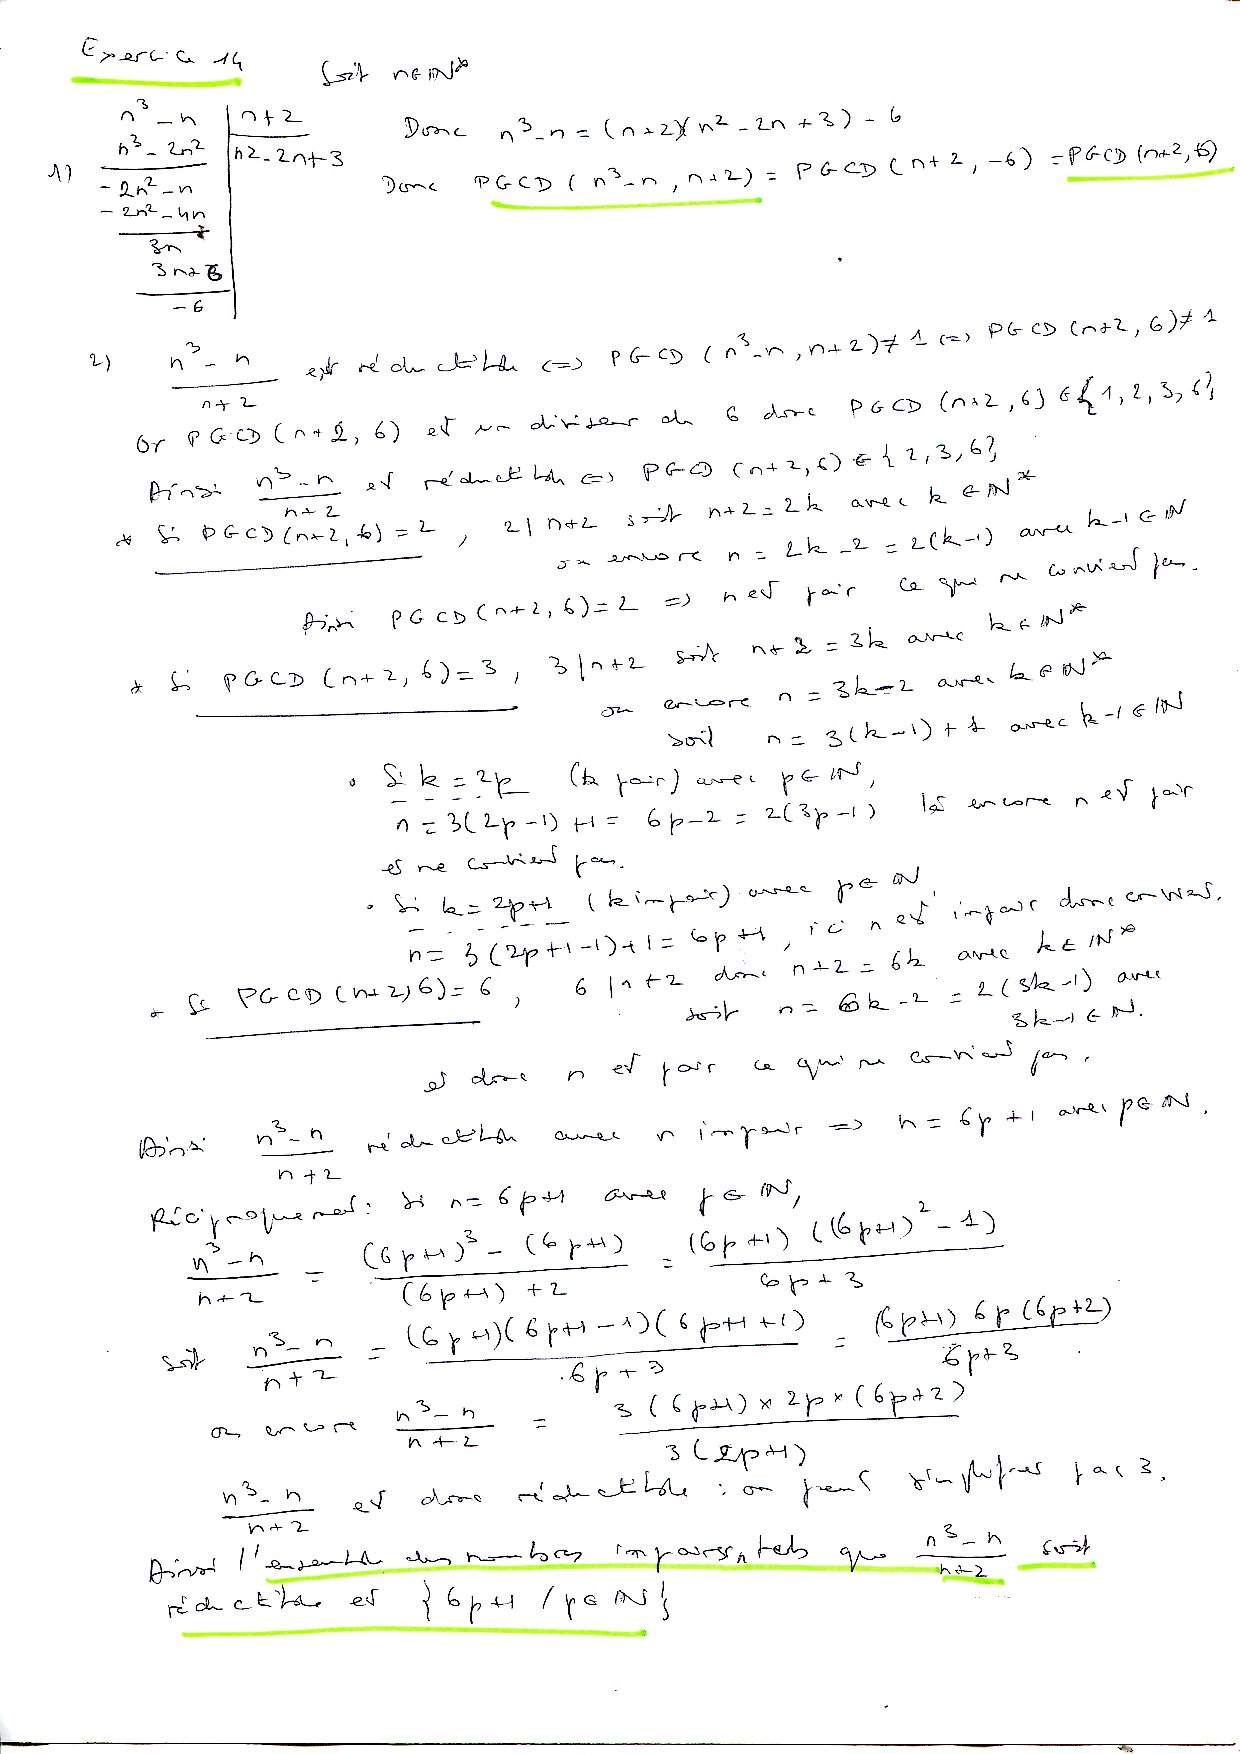 Exercice 14
Soit n∈ℕ*
1)
n³ - n | n+2
n³ - 2n² | n2 - 2n+3
-2n² - n
-2n² - 4n
3n
3n+6
-6
Donc n³-n = (n+2)(n² - 2n + 3) - 6
Donc PGCD(n³-n, n+2) = PGCD(n+2, -6) = PGCD(n+2, 6)
2) n³ - n / n+2 est réductible ⇔ PGCD(n³-n, n+2) ≠ 1 ⇔ PGCD(n+2, 6) ≠ 1
Or PGCD(n+2, 6) est un diviseur de 6 donc PGCD(n+2, 6) ∈ {1, 2, 3, 6}
Ainsi n³-n / n+2 est réductible ⇔ PGCD(n+2, 6) ∈ {2, 3, 6}
* Si PGCD(n+2, 6) = 2, 2 | n+2 soit n+2 = 2k avec k ∈ ℕ*
ou encore n = 2k-2 = 2(k-1) avec k-1 ∈ ℕ
Ainsi PGCD(n+2, 6) = 2 ⇒ n est pair ce qui ne convient pas.
* Si PGCD(n+2, 6) = 3, 3 | n+2 soit n+2 = 3k avec k ∈ ℕ*
ou encore n = 3k-2 avec k ∈ ℕ*
soit n = 3(k-1) + 1 avec k-1 ∈ ℕ
• Si k = 2p (k pair) avec p ∈ ℕ,
n = 3(2p-1) + 1 = 6p-2 = 2(3p-1) là encore n est pair
et ne convient pas.
• Si k = 2p+1 (k impair) avec p ∈ ℕ,
n = 3(2p+1-1)+1 = 6p+1, ici n est impair donc convient.
* Si PGCD(n+2, 6) = 6, 6 | n+2 donc n+2 = 6k avec k ∈ ℕ*
soit n = 6k-2 = 2(3k-1) avec
3k-1 ∈ ℕ.
et donc n est pair ce qui ne convient pas.
Ainsi n³-n / n+2 réductible avec n impair ⇒ n = 6p+1 avec p ∈ ℕ.
Réciproquement : si n = 6p+1 avec p ∈ ℕ,
n³-n / n+2 = (6p+1)³ - (6p+1) / (6p+1) + 2 = (6p+1)((6p+1)² - 1) / 6p+3
soit n³-n / n+2 = (6p+1)(6p+1-1)(6p+1+1) / 6p+3 = (6p+1) 6p (6p+2) / 6p+3
ou encore n³-n / n+2 = 3(6p+1) × 2p × (6p+2) / 3(2p+1)
n³-n / n+2 est donc réductible : on peut simplifier par 3.
Ainsi l'ensemble des nombres impairs n tels que n³-n / n+2 soit
réductible est {6p+1 / p ∈ ℕ}